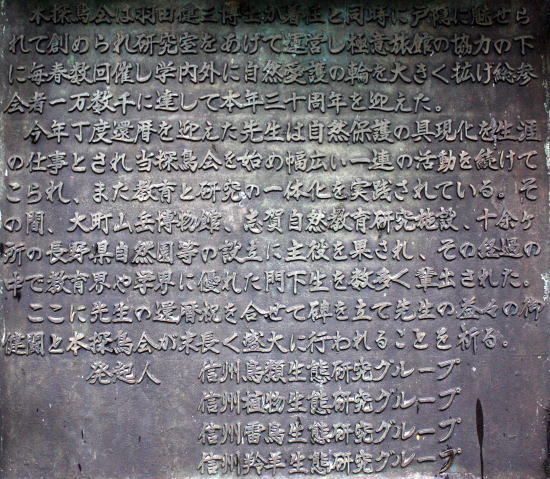 本探鳥会は羽田健三博士が着任と同時に戸隠に魅せら
れて創められ研究室をあげて運営し極意旅館の協力の下
に毎春数回催し学内外に自然愛護の輪を大きく拡げ総参
会者一万数千に達して本年三十周年を迎えた。
今年丁度還暦を迎えた先生は自然保護の具現化を生涯
の仕事とされ当探鳥会を始め幅広い一連の活動を続けて
こられ、また教育と研究の一体化を実践されている。そ
の間、大町山岳博物館、志賀自然教育研究施設、十余ヶ
所の長野県自然園等の設立に主役を果され、その経過の
中で教育界や学界に優れた門下生を数多く輩出された。
ここに先生の還暦祝を合せて碑を立て先生の益々の御
健闘と本探鳥会が末長く盛大に行われることを祈る。
発起人 信州鳥類生態研究グループ
信州植物生態研究グループ
信州雷鳥生態研究グループ
信州羚羊生態研究グループ